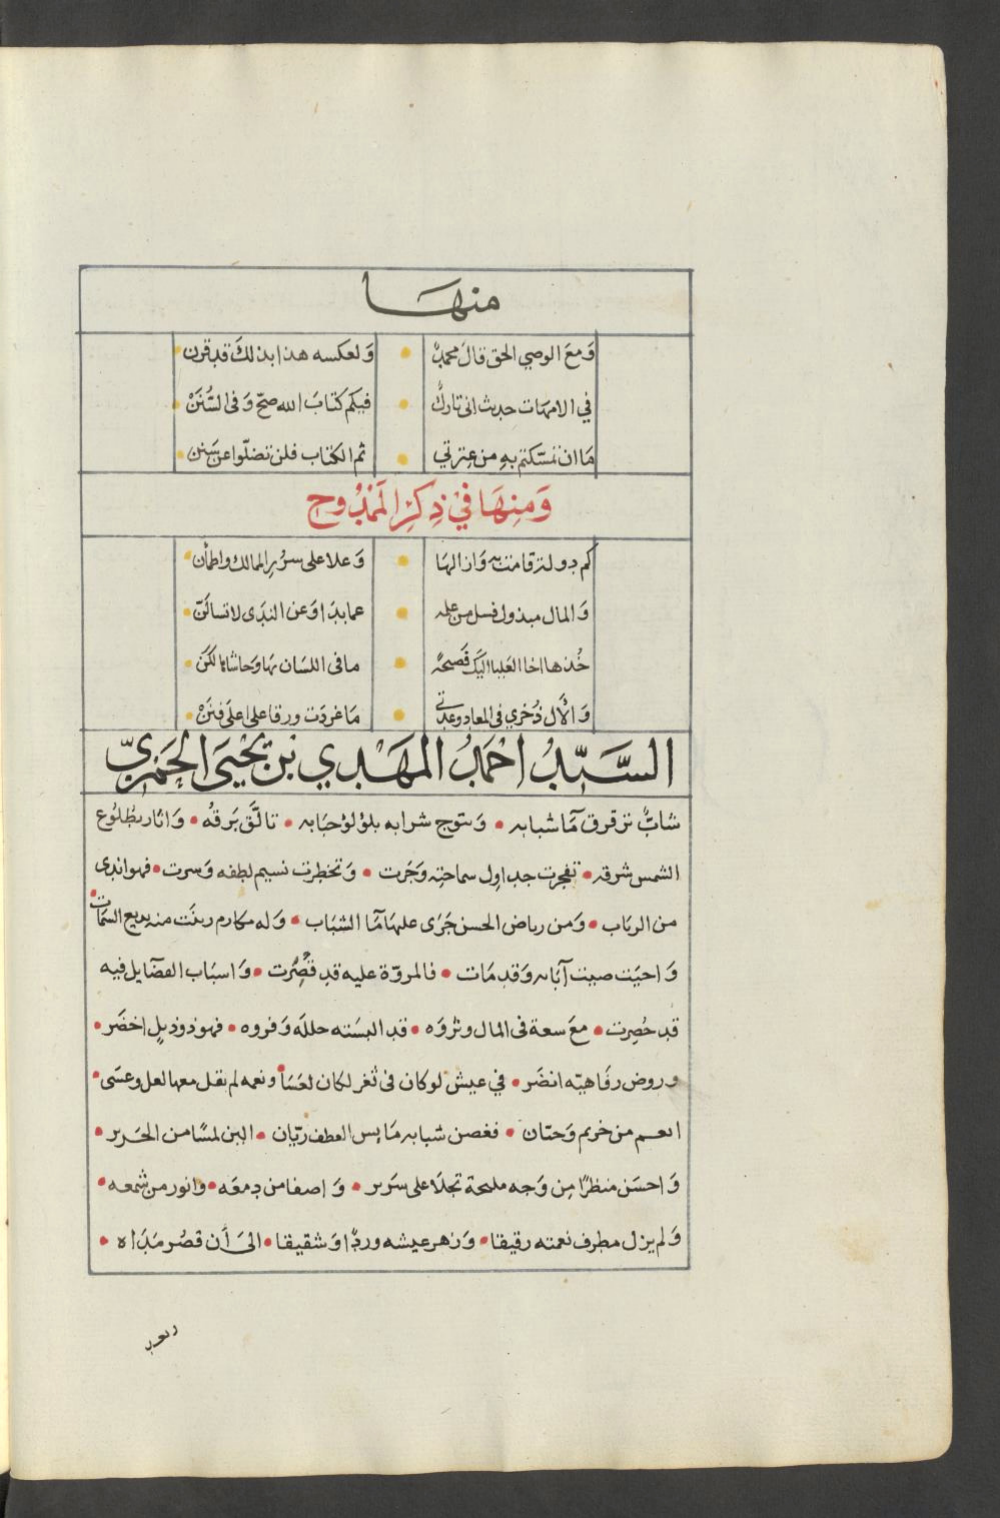 منهَا
وَمعَ الوصي الحق قالَ محمدٌ • وَلعكسه هذا بذلكَ قد قرن
في الامهَات حديث اني تاركٌ • فيكم كتابَ الله صحّ وَفى السُّنَنْ
مَا ان تمسّكتم بهِ من عِترتي • ثم الكتاب فلن تضلّوا عن سَنن
وَمِنهَا فيْ ذِكرِ المَمْدُوح
كم دولة قامت به وَازالهَا • وَعلا على سرُرِ الممالك واطمأن
وَالمال مبذول فسل من عله • عما بدَا وَعن الندَى لا تسالَنّ
خُذها اخا العَليا اليكَ فَصيحةً • مافى اللسَان بها وَحاشاها لكَن
وَالْآل ذُخري فى المعاد وعدتي • مَا غردَت ورقا على اعلى فنَنْ
السَّيّدُ احْمَدُ المَهْدِي بنِ يَحْيَى الحَمزيّ
شابٌّ ترقرق مَآ شبابه • وَتتوج شرابه بلؤلؤ حبَابه • تالَّق بَرقهُ • وَانار بطُلوُع
الشمس شرقه • تفجرت جداوِل سماحتِه وَجَرت • وَتخطرت نسيم لطفه وَسرت • فهو اندى
من الربَاب • وَمن رياض الحسن جَرَى عليهَا مَآ الشبَاب • وَله مكارم ربئَت منه بديع السّمَات •
وَاحيَت صيت آبَائه وَقد مَات • فالمروّة عليه قد قُصِّرت • وَاسبَاب الفضَايل فيه
قد حُصِرت • معَ سعة فى المال وثروَه • قد البسَته حللَه وَفروه • فهو ذو ذيلٍ اخضَر •
وروض رفَاهيّه انضَر • في عيش لو كان فى ثغر لكان لعَسَاً • ونعمه لم نقل معها لعل وعسَى •
انعم من خريم وَحنّان • فغصن شبابه مَايس العطف ريّان • الين لمسًا من الحَرير •
وَاحسَن منظرًا مِن وَجه مليحة تجلَا على سَرير • وَاصفا من دِمعَه • وانور من شمعه •
وَلم يزل مطرف نعمته رقيقا • وَزهر عيشه وردًا وَشقيقا • الىَ أن قصُر مَدَاه •